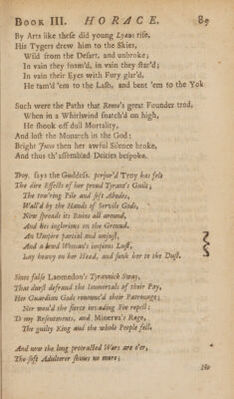 BOOK III. HORACE. 89
By Arts like these did young Lyæus rise,
His Tygers drew him to the Skies,
Wild from the Desart, and unbroke;
In vain they foam'd, in vain they star'd;
In vain their Eyes with Fury glar'd,
He tam'd 'em to the Lash, and bent 'em to the Yok
Such were the Paths that Rome's great Founder trod,
When in a Whirlwind snatch'd on high,
He shook off dull Mortality,
And lost the Monarch in the God:
Bright Juno then her awful Silence broke,
And thus th' assembled Deities bespoke.
Troy, says the Goddess, perjur'd Troy has felt
The dire Effects of her proud Tyrant's Guilt;
The tow'ring Pile and soft Abodes,
Wall'd by the Hands of Servile Gods,
Now spreads its Ruins all around,
And lies inglorious on the Ground.
An Umpire partial and unjust,
And a lewd Woman's impious Lust,
Lay heavy on her Head, and sunk her to the Dust.
Since false Laomedon's Tyrannick Sway,
That durst defraud the Immortals of their Pay,
Her Guardian Gods renounc'd their Patronage;
Nor wou'd the fierce invading Foe repell;
To my Resentments, and Minerva's Rage,
The guilty King and the whole People fell.
And now the long protracted Wars are o'er,
The soft Adulterer shines no more;